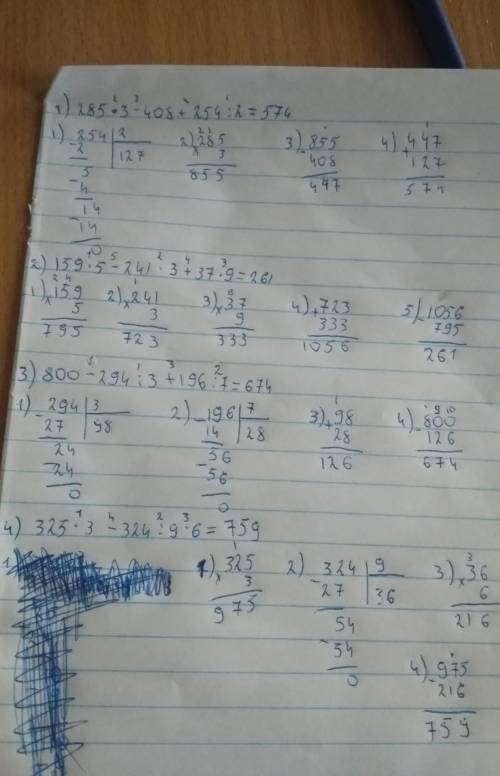 1) 285 · 3 - 408 + 254 : 2 = 574
1) 254 | 2 2) 285 3) 855 4) 447
-2 127 × 3 - 408 + 127
5 855 447 574
-4
14
-14
0
2) 159 · 5 - 241 · 3 + 37 · 9 = 261
1) 159 2) 241 3) 37 4) + 723 5) - 1056
× 5 × 3 × 9 333 795
795 723 333 1056 261
3) 800 - 294 : 3 + 196 : 7 = 674
1) - 294 | 3 2) - 196 | 7 3) + 98 4) - 800
27 98 14 28 28 126
24 56 126 674
-24 -56
0 0
4) 325 · 3 - 324 : 9 · 6 = 759
1) 325 2) - 324 | 9 3) 36
× 3 27 36 × 6
975 54 216
-54
0
4) - 975
216
759